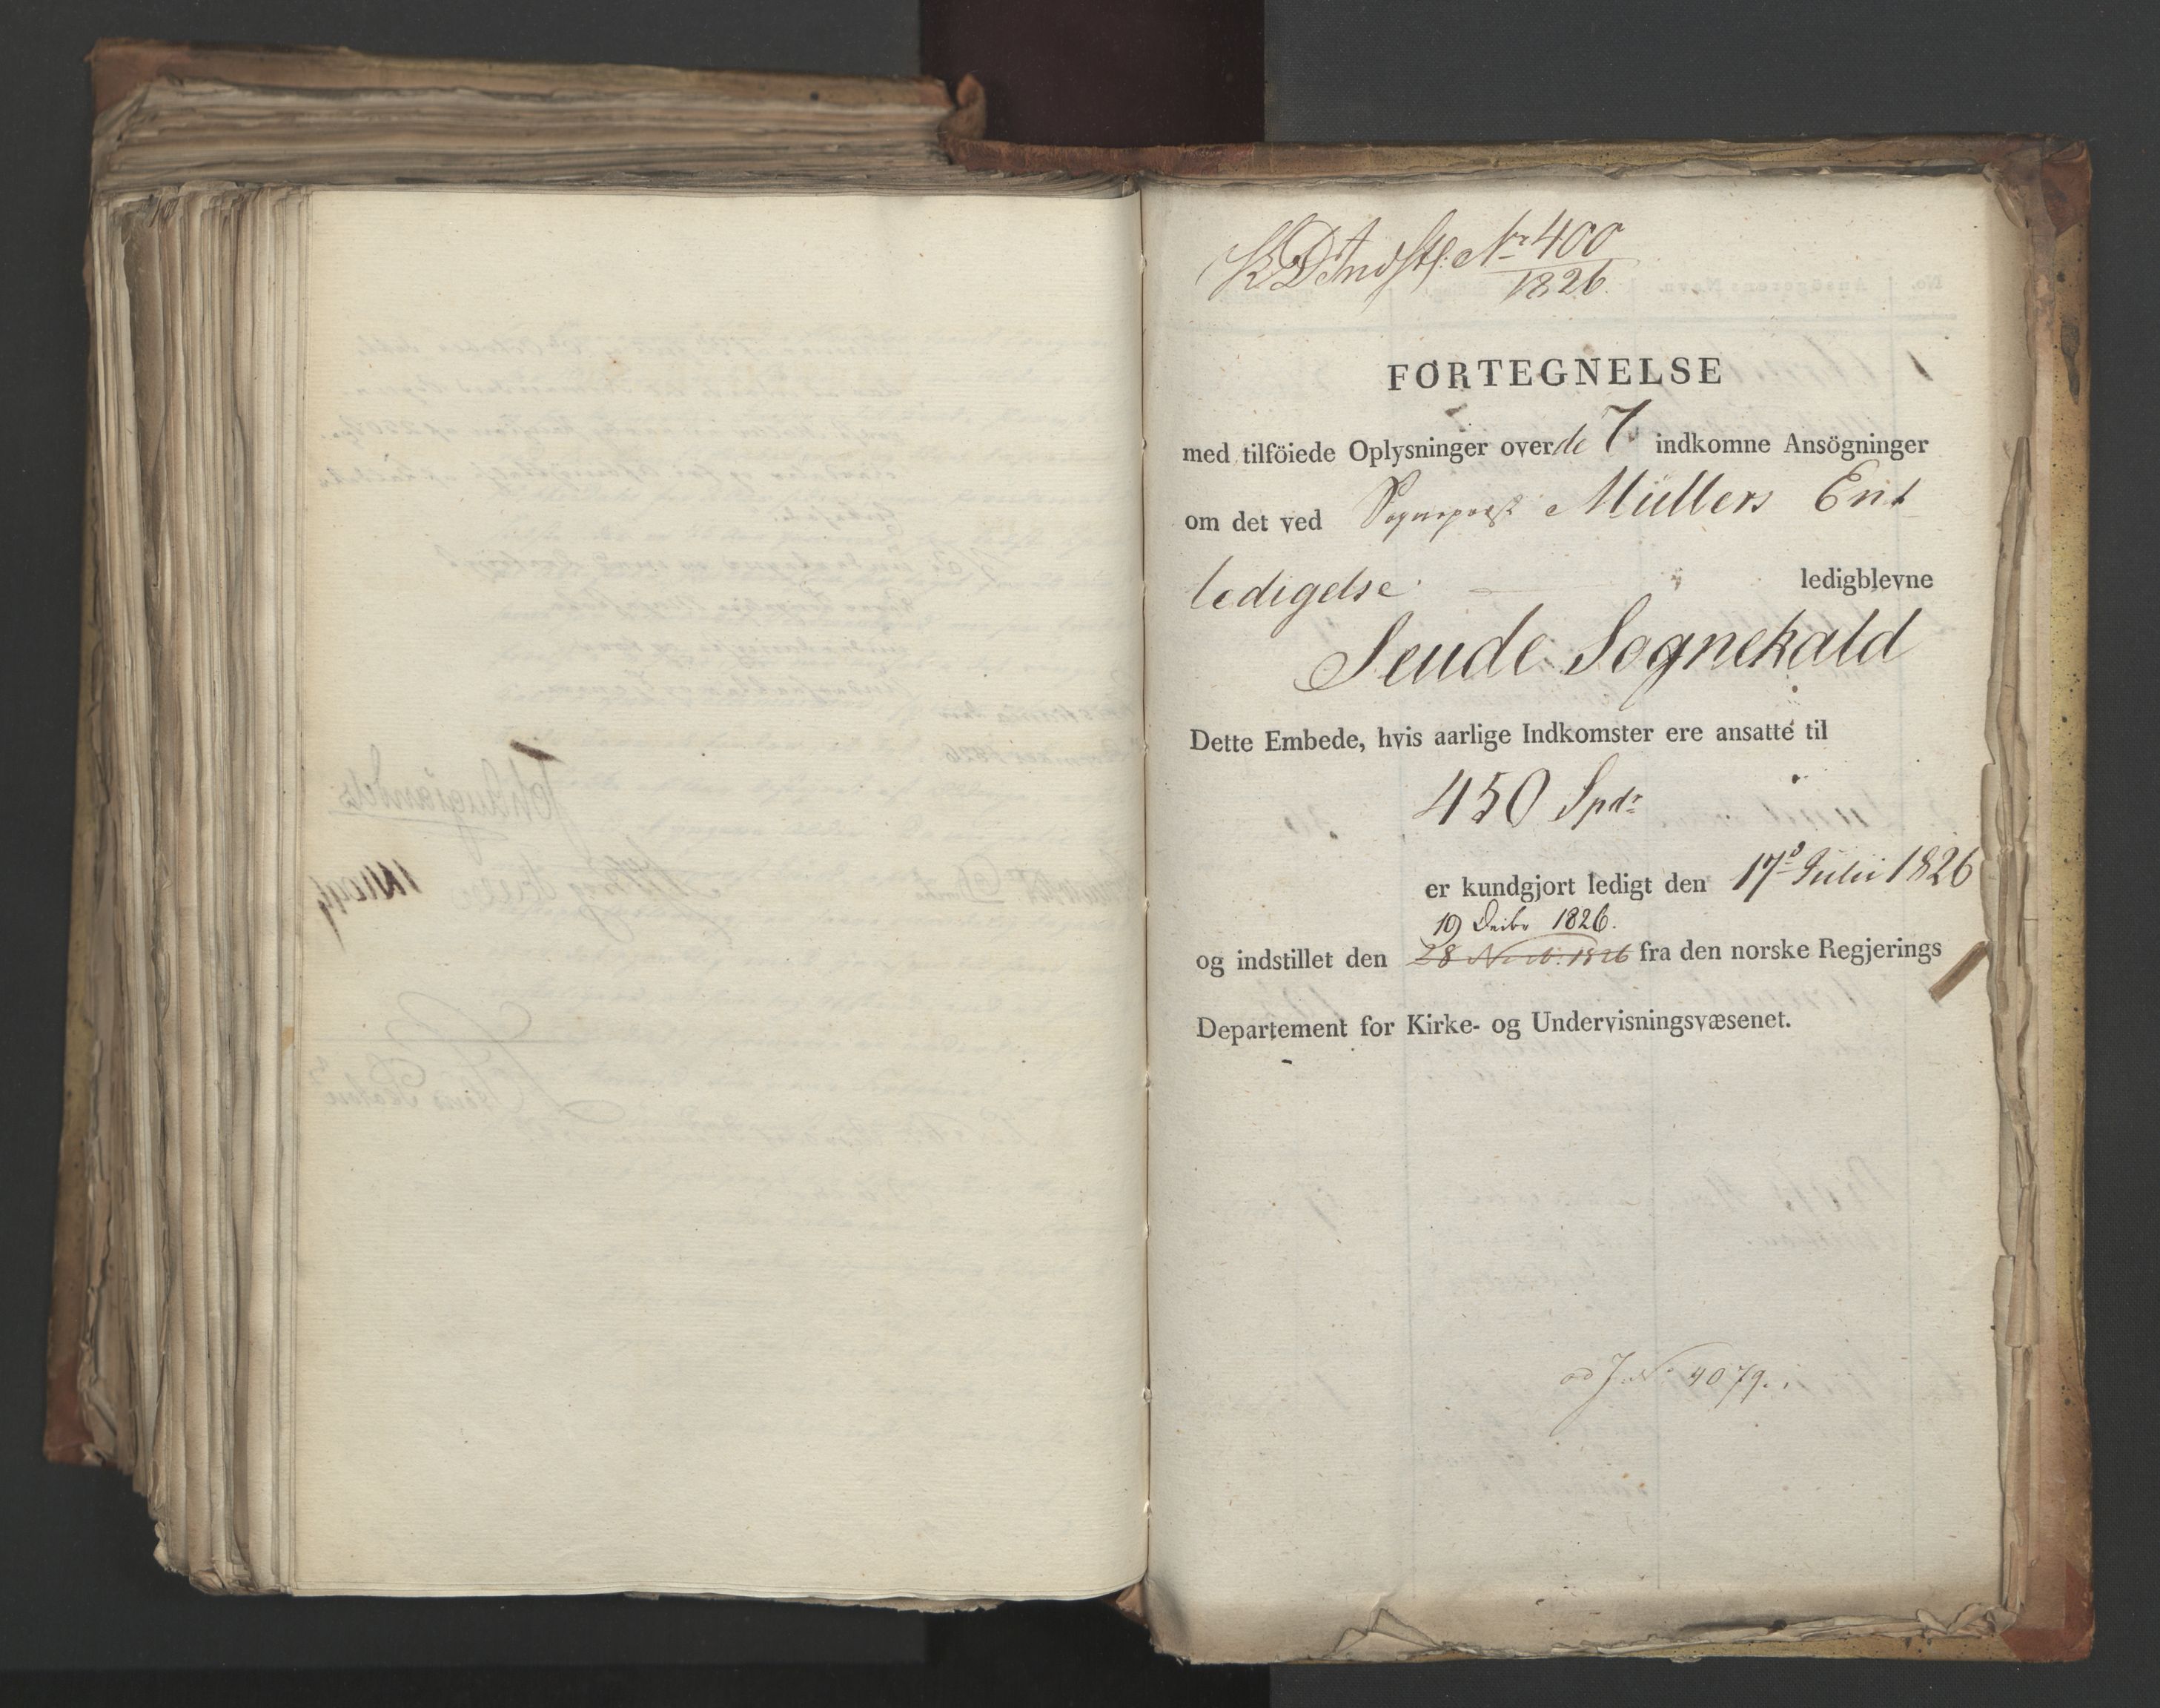 KD Indstl: Nr 400
1826.
FORTEGNELSE
med tilföiede Oplysninger over de 7 indkomne Ansögninger
om det ved Sognepræst Müllers Ent
ledigelse ledigblevne
Seude Sognekald
Dette Embede, hvis aarlige Indkomster ere ansatte til
450 Spdr
er kundgjort ledigt den 17d Julii 1826
19 Decbr 1826.
og indstillet den 28 Novb: 1826 fra den norske Regjerings
Departement for Kirke- og Undervisningsvæsenet.
ad J. No 4079.